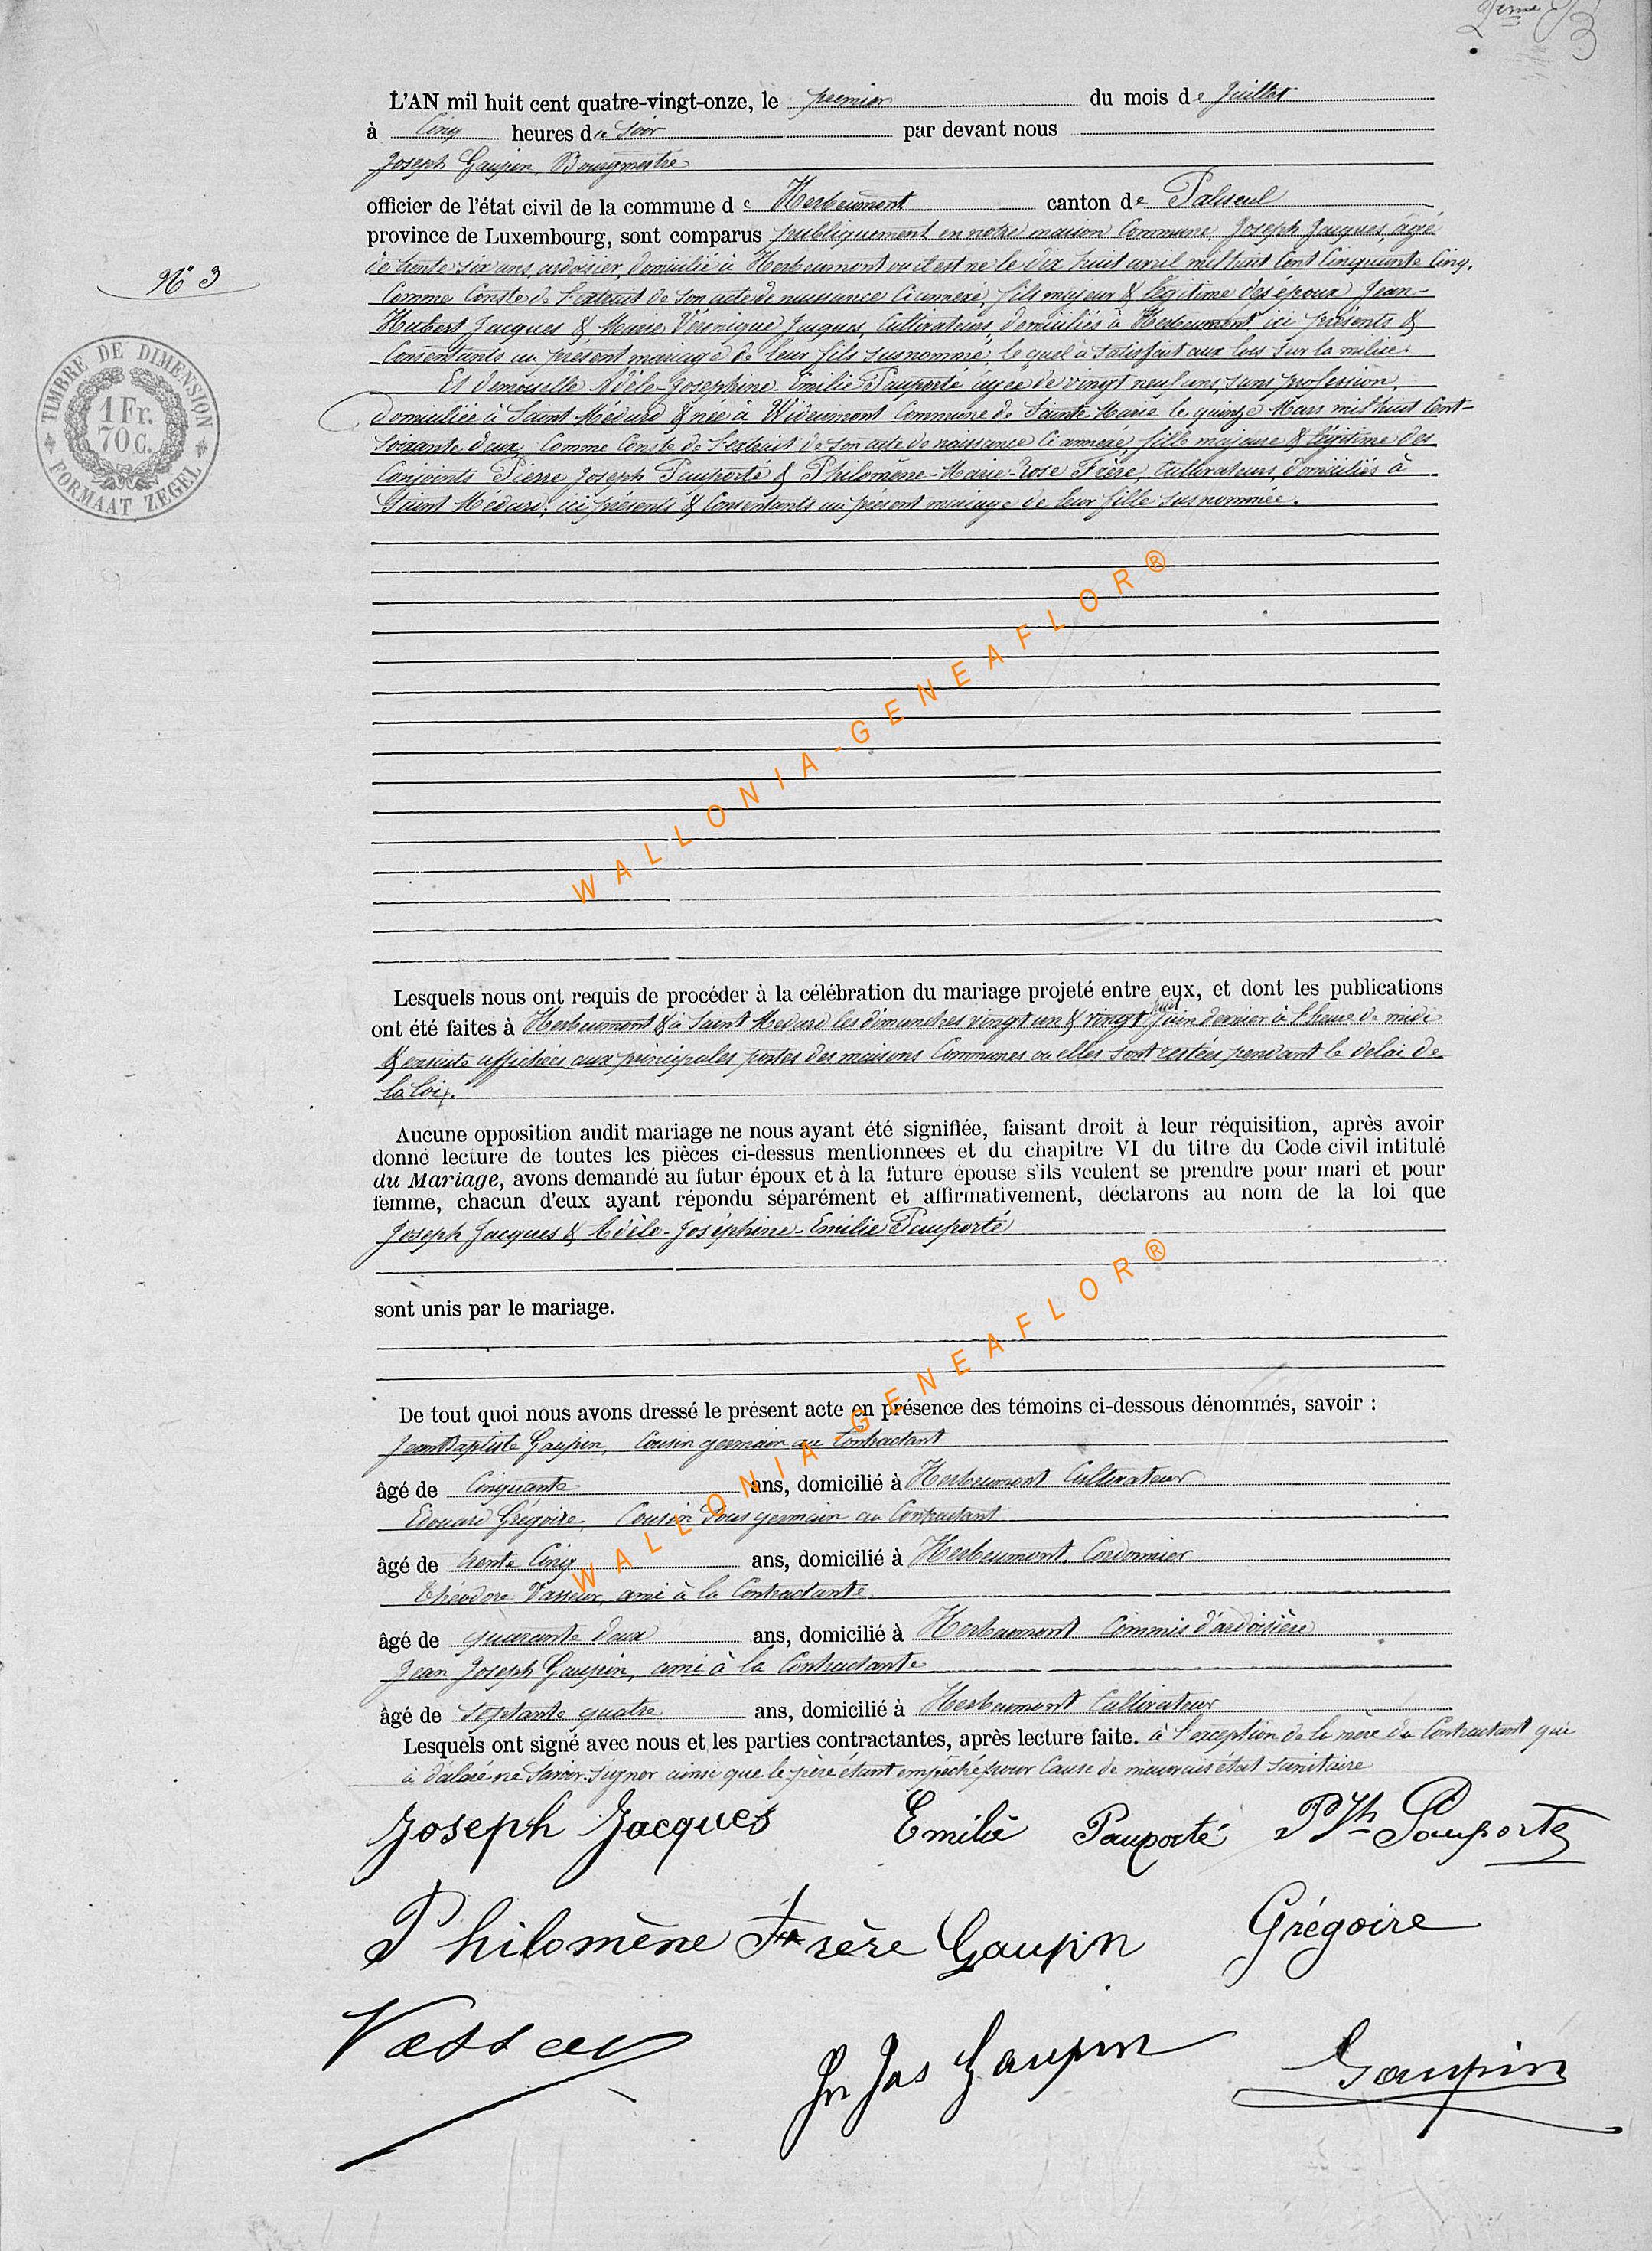 2eme
3
L'AN mil huit cent quatre-vingt-onze, le premier du mois de Juillet
à Cinq heures du Soir par devant nous
Joseph Gaupin, Bourgmestre
officier de l'état civil de la commune de Herbeumont canton de Paliseul
province de Luxembourg, sont comparus publiquement en notre maison Commune, Joseph Jacques, âgé
N° 3
de trente six ans, ardoisier, domicilié à Herbeumont ou il est né le dix huit avril mil huit Cent Cinquante Cinq,
Comme Conste de l'extrait de son acte de naissance Ci annexé, fils majeur & légitime des époux Jean-
Hubert Jacques & Marie Véronique Jacques, Cultivateurs, domiciliés à Herbeumont ici présents &
Consentants au présent mariage de leur fils susnommé, lequel à satisfait aux lois sur la milice.
Et demoiselle Adèle-Joséphine-Emilie Pauporté âgée de vingt neuf ans, sans profession,
domiciliée à Saint-Médard & née à Wideumont Commune de Sainte Marie le quinze Mars mil huit Cent-
soixante deux, Comme Conste de l'extrait de son acte de naissance Ci annexé, fille majeure & légitime des
Conjoints Pierre Joseph Pauporté & Philomène-Marie-Rose Frère, Cultivateurs, domiciliés à
Saint Médard, ici présents & Consentants au présent mariage de leur fille susnommée.
TIMBRE DE DIMENSION
1 Fr.
70 C.
FORMAAT ZEGEL
WALLONIA-GENEAFLOR®
Lesquels nous ont requis de procéder à la célébration du mariage projeté entre eux, et dont les publications
huit
ont été faites à Herbeumont & à Saint Medard les dimanches vingt un & vingt Juin dernier à l'heure de midi
& ensuite affichées aux principales portes des maisons Communes ou elles sont restées pendant le délai de
la loi.
Aucune opposition audit mariage ne nous ayant été signifiée, faisant droit à leur réquisition, après avoir
donné lecture de toutes les pièces ci-dessus mentionnees et du chapitre VI du titre du Code civil intitulé
du Mariage, avons demandé au futur époux et à la future épouse s'ils veulent se prendre pour mari et pour
femme, chacun d'eux ayant répondu séparément et affirmativement, déclarons au nom de la loi que
Joseph Jacques & Adèle-Joséphine-Emilie Pauporté
sont unis par le mariage.
WALLONIA-GENEAFLOR®
De tout quoi nous avons dressé le présent acte en présence des témoins ci-dessous dénommés, savoir :
Jean Baptiste Gaupin, Cousin germain au Contractant
âgé de Cinquante ans, domicilié à Herbeumont Cultivateur
Edouard Grégoire, Cousin Sous germain au Contractant
âgé de trente Cinq ans, domicilié à Herbeumont, Cordonnier
Théodore Vasseur, ami à la Contractante
âgé de quarante deux ans, domicilié à Herbeumont Commis d'ardoisière
Jean Joseph Gaupin, ami à la Contractante
âgé de septante quatre ans, domicilié à Herbeumont Cultivateur
Lesquels ont signé avec nous et les parties contractantes, après lecture faite. à l'exception de la mère du Contractant qui
à déclaré ne Savoir signer ainsi que le père étant empêché pour Cause de mauvais état sanitaire
Joseph Jacques Emilie Pauporté PJh Pauporté
Philomène Frère Gaupin Grégoire
Vasseur Jn Jos Gaupin Gaupin